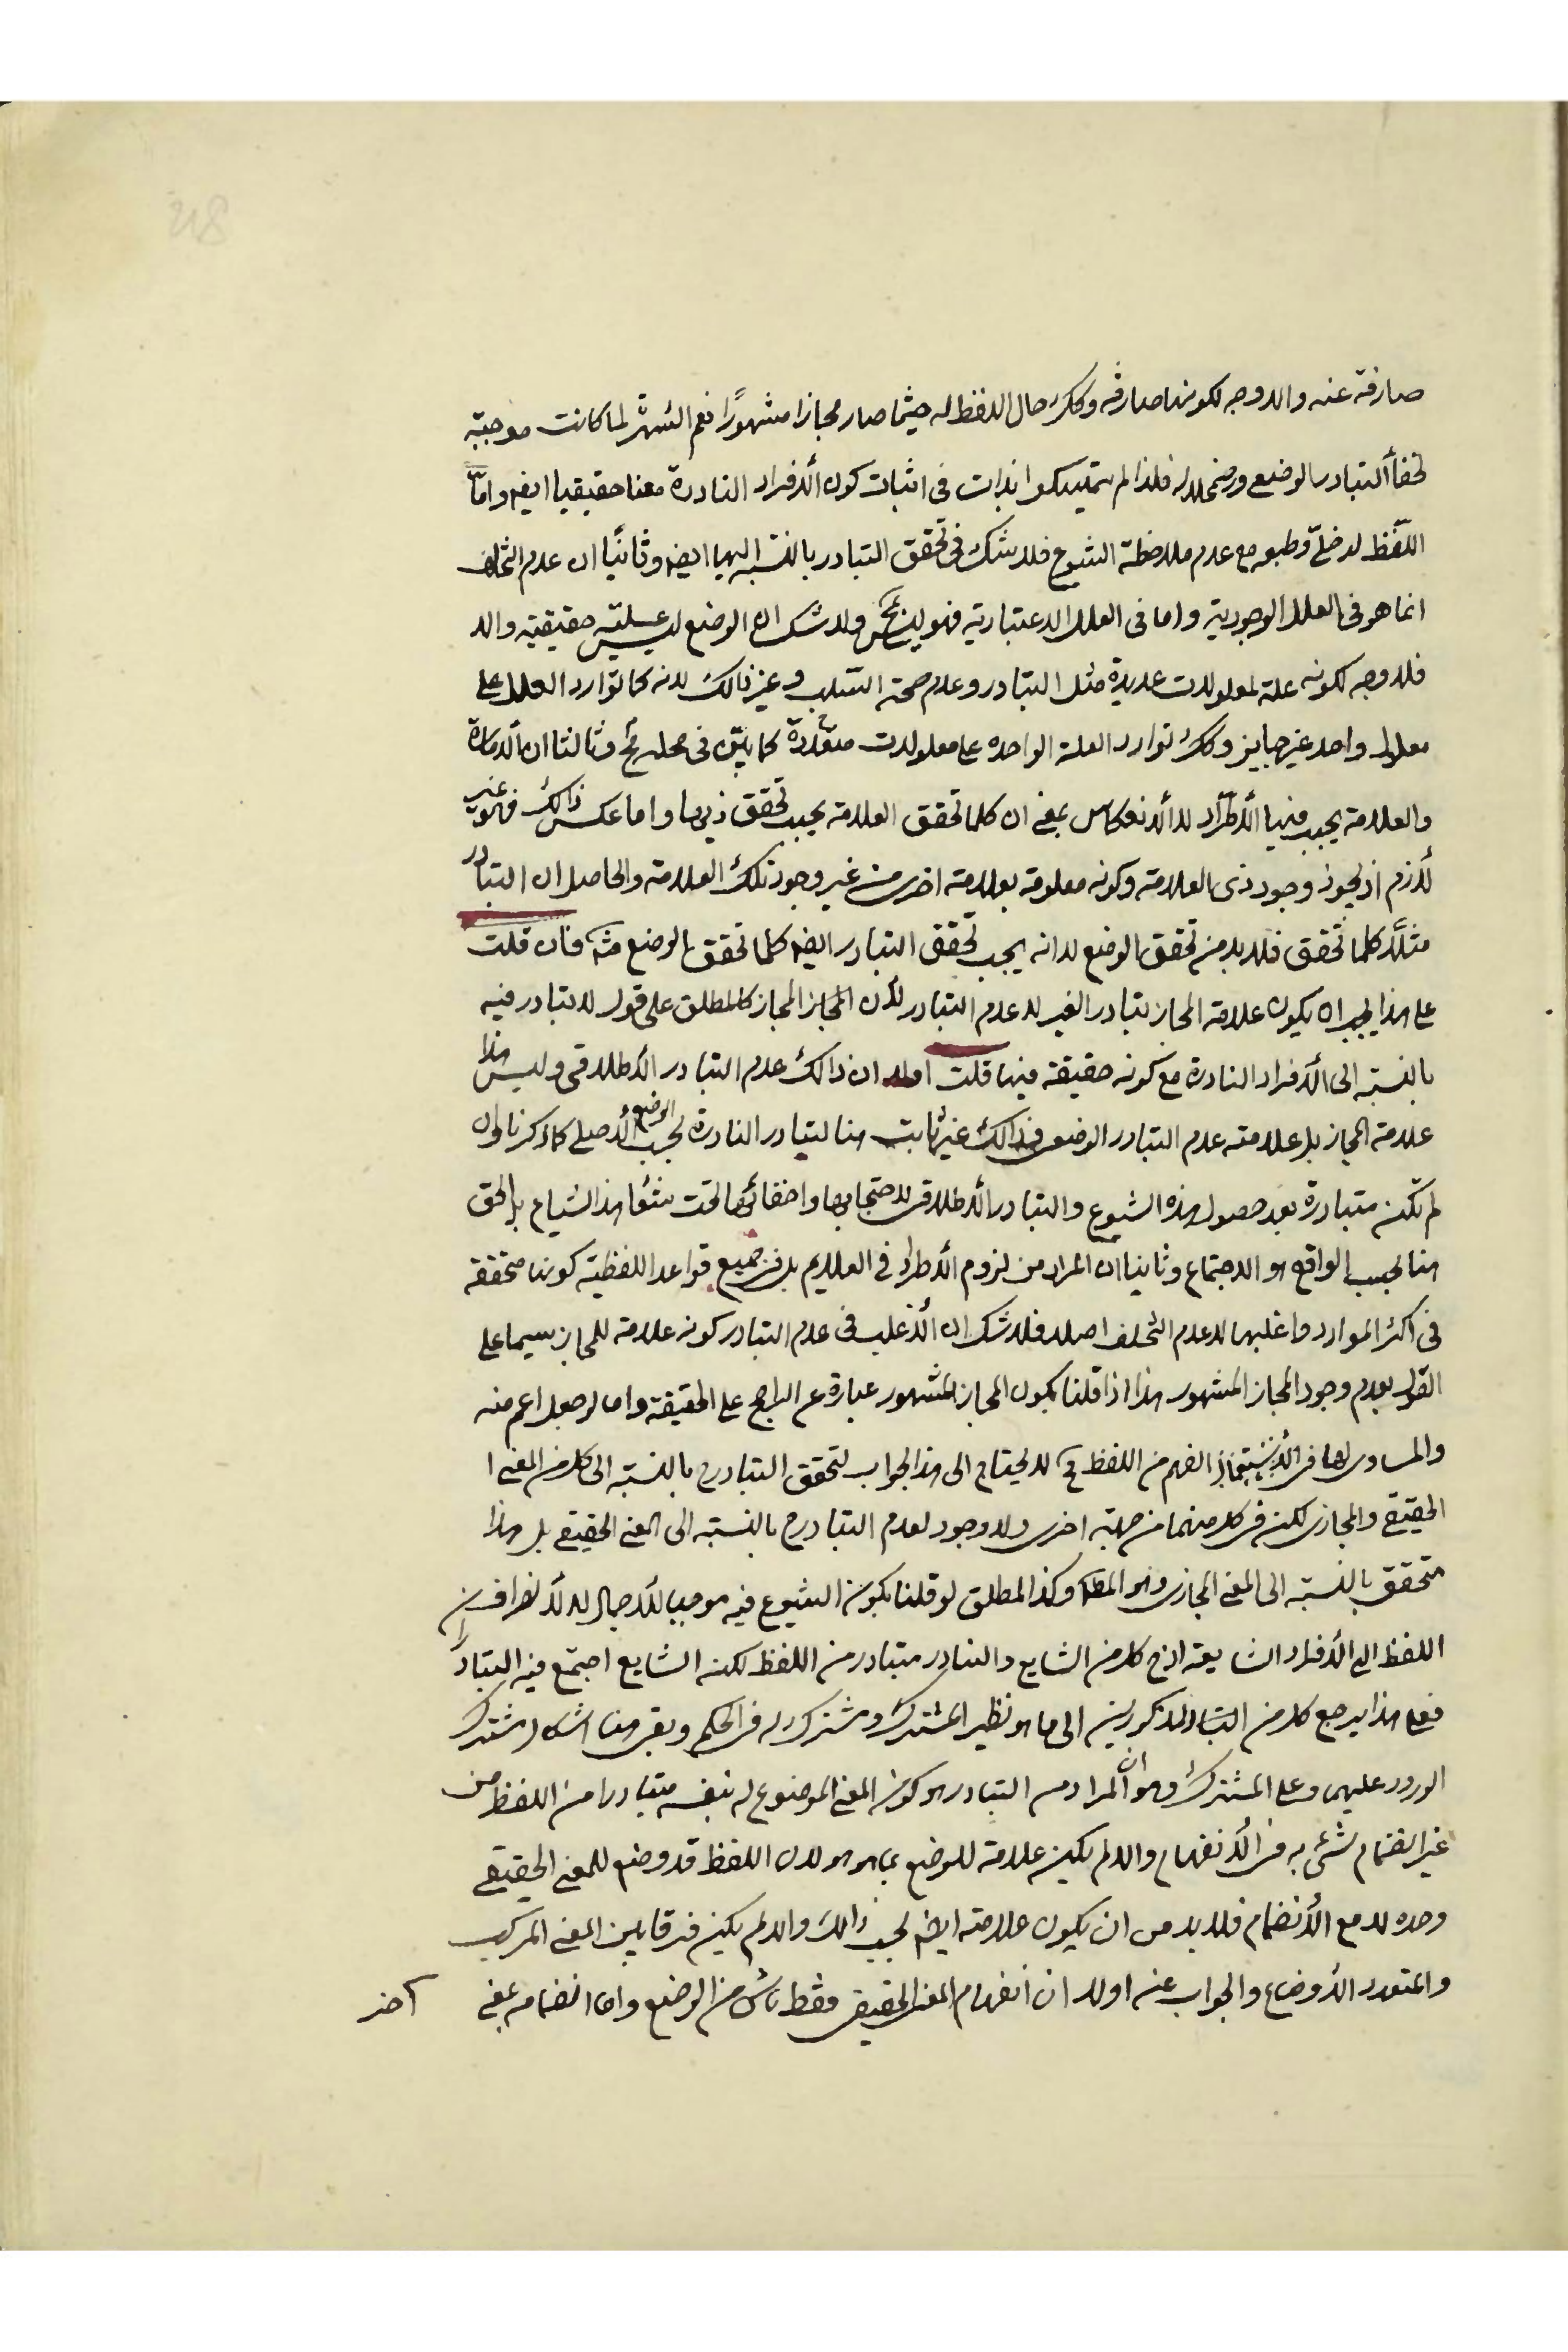 صارفة عنه والا وجه لكونها صارفه وكك حال اللفظ له حيثما صار مجازا مشهورًا نعم الشهرة لما كانت موجبته
لخفأ التبادر الوضعى واضمحلاله فلذا لم يتمسكوا بذات فى اثبات كون الأفراد النادرة معنا حقيقيا ايضه واما
اللفظ لو خلّى وطبعه مع عدم ملاحظة الشيوع فلا شك فى تحقق التبادر بالنسبة اليها ايضه وثانيًا ان عدم التخلف
انما هو فى العلل الوجودية واما فى العلل الاعتبارية فهو ولا شك ان الوضع ليس علته حقيقيته والا
فلا وجه لكونه علة لمعلولات عديدة مثل التبادر وعدم صحة السلب وغير ذالك لانه كما توارد العلل على
معلول واحد غير جايز وكك توارد العلة الواحده على معلولات متعددة كما بيّن فى محله وثالثا ان الأمارة
والعلامة يجب فيها الأطراد لا الأنعكاس بمعنى ان كلما تحقق العلامة يجب تحقق ذيها واما عكس ذالك فهو غير
لازم اذ يجوز وجود ذى العلامة وكونه معلومة بعلامة اخرى من غير وجود تلك العلامة والحاصل ان التبادر
مثلًا كلما تحقق فلا بد من تحقق الوضع لا انه يجب تحقق التبادر ايضه كلما تحقق الوضع فان قلت
على هذا يجب ان يكون علامة المجاز تبادر الغير لا عدم التبادر لأن المجاز كالمطلق على قول لا تبادر فيه
بالنسبة الى الأفراد النادرة مع كونه حقيقة فيها قلت اولا ان ذالك عدم التبادر الأطلاقى وليس هذا
علامة المجاز بل علامته عدم التبادر الوضعى وذالك غير ثابت هنا لتبادر النادرة بحسب الوضع الأصلى كما ذكرنا وان
لم تكن متبادرة بعد حصول هذه الشيوع والتبادر الأطلاقى لاحتجابها واخفائها تحت هذا الشياع بل الحق
هنا بحسب الواقع هو الاجتماع وثانيا ان المراد من لزوم الأطراد فى العلايم بل فى جميع قواعد اللفظية كونها محققة
فى اكثر الموارد واغلبها لا عدم التخلف اصلا فلا شك ان الأغلب فى عدم التبادر كونه علامة للمجاز سيما على
القول بعدم وجود المجاز المشهور هذا اذا قلنا بكون المجاز المشهور عبارة عن الراجح على الحقيقة واما لو جعل اعم منه
والمساوى لها فى الفهم من اللفظ لا يحتاج الى هذا الجواب لتحقق التبادر بالنسبة الى كل من المعنى ا
الحقيقى والمجازى لكن فى كل منهما من جهة اخرى ولا وجود لعدم التبادر بالنسبة الى المعنى الحقيقى بل هذا
متحقق بالنسبة الى المعنى المجازى وهو المط وكذا المطلق لو قلنا بكون الشيوع فيه موجبا للأجمال لا لأنصراف
اللفظ الى الأفراد الشايعة اذ كل من الشايع والنادر متبادر من اللفظ لكنه الشايع اجتمع فيه التبادران
فعلى هذا يرجع كل من التبادر المذكورين الى ما هو نظير المشترك ومشترك له فى الحكم وبقى هنا اشكال مشترك
الورود عليهما وعلى المشترك وهو ان المراد من التبادر هو كون المعنى الموضوع له بنفسه متبادرا من اللفظ من
غير انضمام شئ به فى الأنفهام والا لم يكن علامة للوضع بما هو هو لان اللفظ قد وضع للمعنى الحقيقى
وحده لا مع الأنضمام فلا بد من ان يكون علامته ايضه بحسب ذالك والا لم يكن فرقا بين المعنى المركب
والمتعدد الأوضاع والجواب عنه اولا ان انفهام المعنى الحقيقى فقط ناش من الوضع واما انضمامه بمعنى
آخر